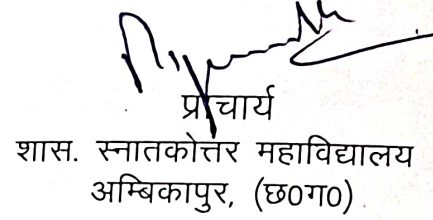 प्राचार्य
शास. स्नातकोत्तर महाविद्यालय
अम्बिकापुर, (छ०ग०)